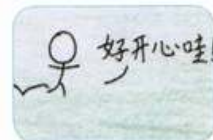 好开心哇!